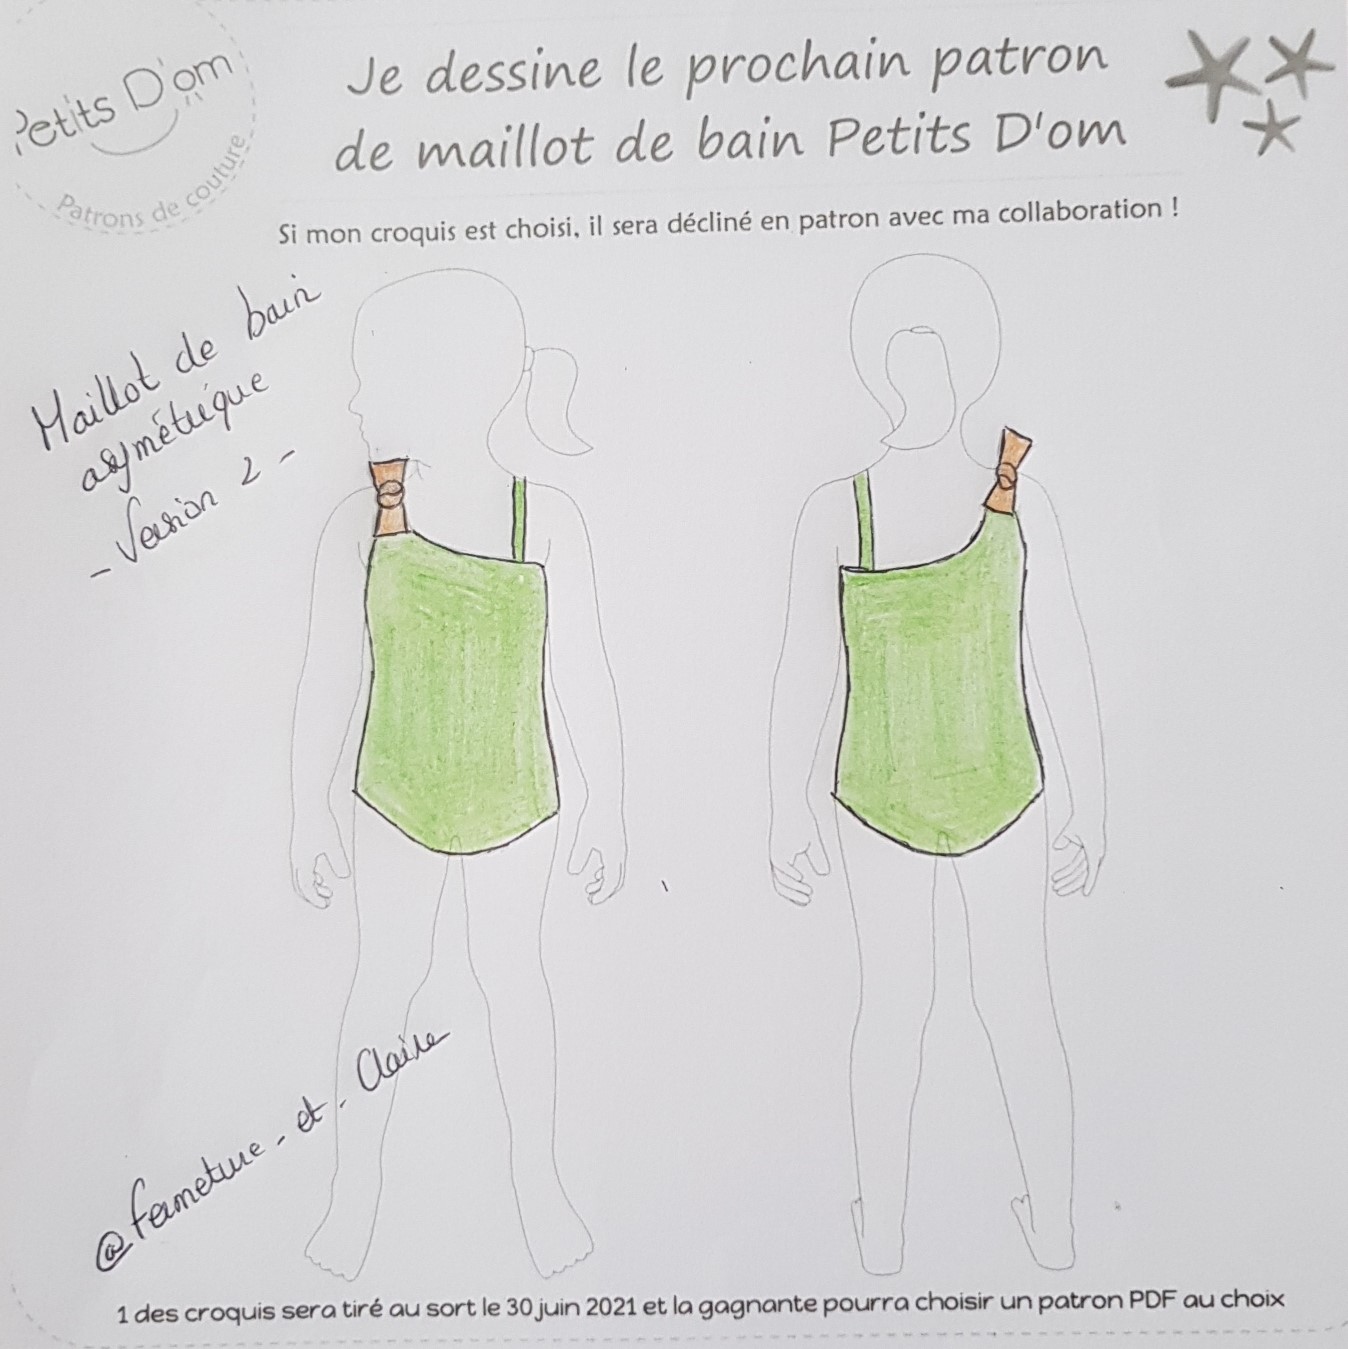 Petits D'om
Patrons de couture
Je dessine le prochain patron
de maillot de bain Petits D'om
Si mon croquis est choisi, il sera décliné en patron avec ma collaboration !
Maillot de bain
asymétrique
- Version 2 -
@fermeture-et-Claire
1 des croquis sera tiré au sort le 30 juin 2021 et la gagnante pourra choisir un patron PDF au choix